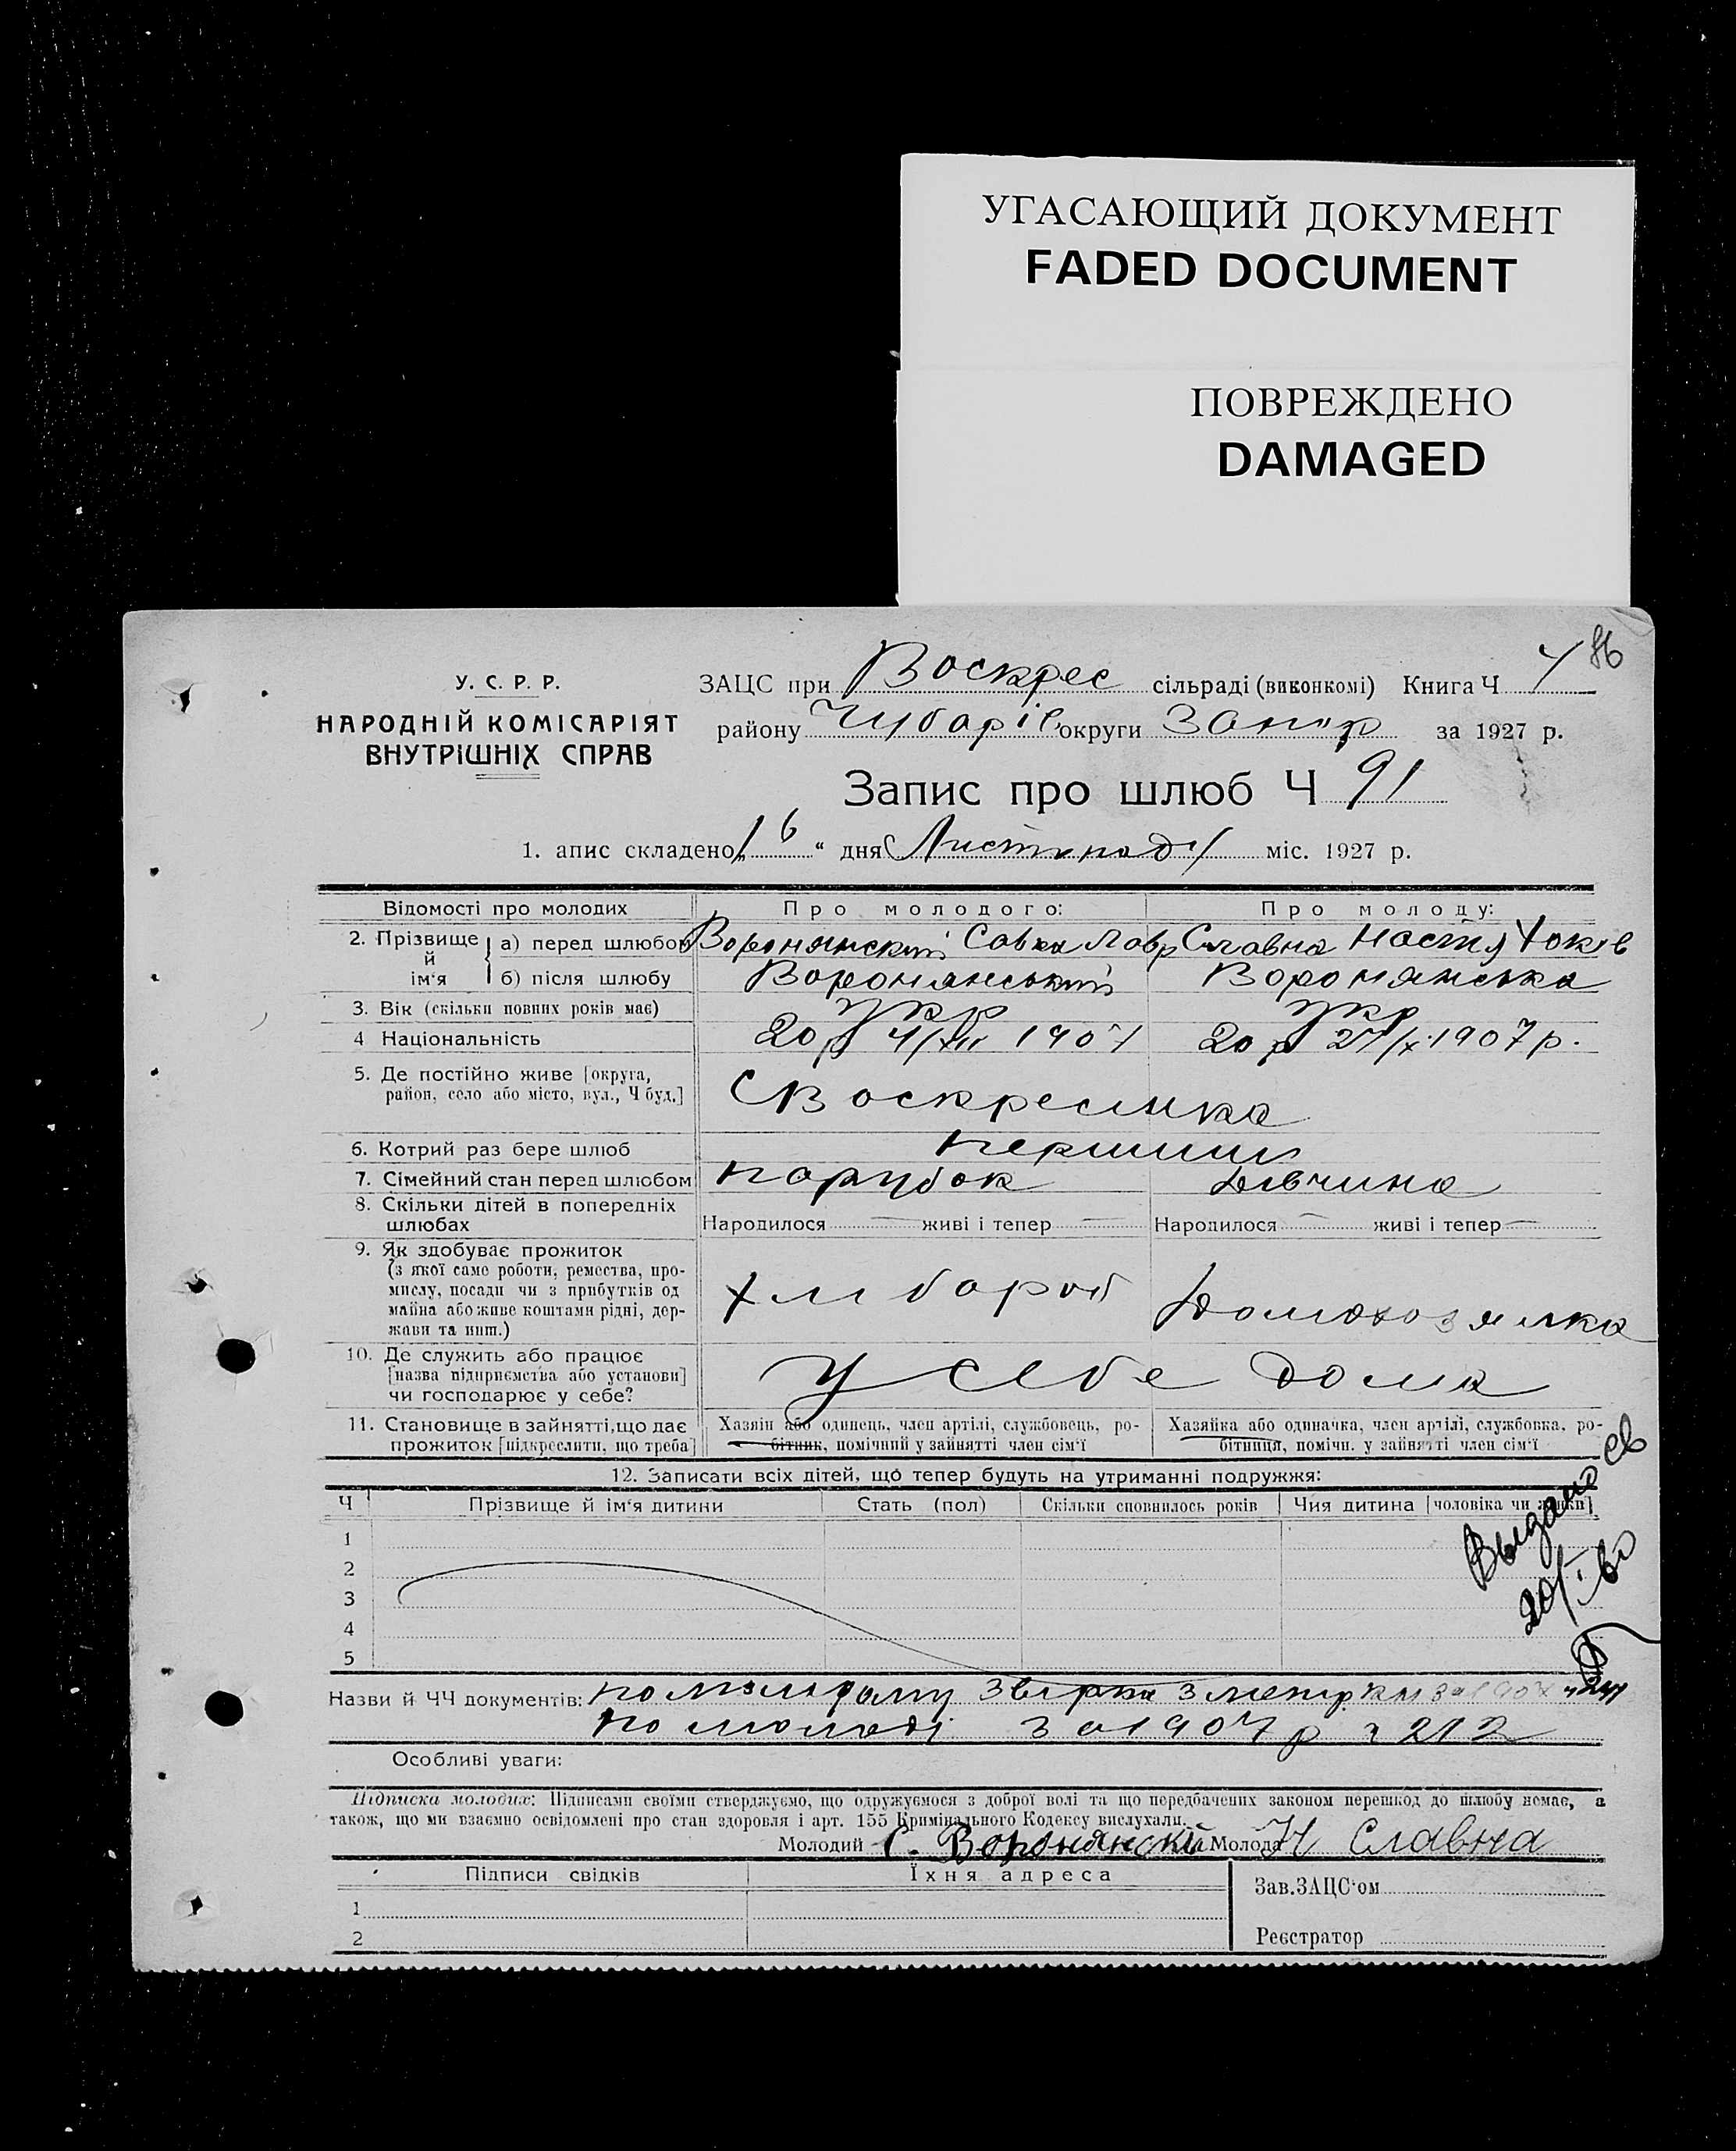 УГАСАЮЩИЙ ДОКУМЕНТ
FADED DOCUMENT
ПОВРЕЖДЕНО
DAMAGED
86
У. С. Р. Р.
НАРОДНІЙ КОМІСАРІЯТ
ВНУТРІШНІХ СПРАВ
ЗАЦС при Воскрес сільраді (виконкомі) Книга Ч
району Чубарів округи Запор за 1927 р.
Запис про шлюб Ч 91
1. апис складено „16“ дня Листопаду міс. 1927 р.
Відомості про молодих Про молодого: Про молоду:
2. Прізвище й ім'я а) перед шлюбом Воронянский Савка Лавр Славна Настя Яків
б) після шлюбу Воронянський Воронянська
3. Вік (скільки повних років має) укр укр
4 Національність 20 р 4/XII 1907 20 р 27/X 1907 р.
5. Де постійно живе [округа,
район, село або місто, вул., Ч буд.] С Воскресинка
6. Котрий раз бере шлюб перший
7. Сімейний стан перед шлюбом парубок дівчина
8. Скільки дітей в попередніх
шлюбах Народилося — живі і тепер — Народилося — живі і тепер —
9. Як здобуває прожиток
(з якої саме роботи, ремества, про-
мислу, посади чи з прибутків од
майна або живе коштами рідні, дер-
жави та инш.) хлібороб Домохозяйка
10. Де служить або працює
[назва підприємства або установи]
чи господарює у себе? У себе дома
11. Становище в зайнятті, що дає Хазяїн або одинець, член артілі, службовець, ро- Хазяйка або одиначка, член артілі, службовка, ро-
прожиток [підкреслити, що треба] бітник, помічний у зайнятті член сім'ї бітниця, помічн. у зайнятті член сім'ї
12. Записати всіх дітей, що тепер будуть на утриманні подружжя:
Ч Прізвище й ім'я дитини Стать (пол) Скільки сповнилось років Чия дитина [чоловіка чи жінки]
1
2
3
4
5
Выдано св
20/I
Назви й ЧЧ документів: по молодому звірка з метрікм за 1907
по молоді за 1907 р ч 212
Особливі уваги:
Підписка молодих: Підписами своїми стверджуємо, що одружуємося з доброї волі та що передбачених законом перешкод до шлюбу немає, а
також, що ми взаємно освідомлені про стан здоровля і арт. 155 Кримінального Кодексу вислухали.
Молодий С. Воронянский Молода Н Славна
Підписи свідків Їхня адреса Зав.ЗАЦС'ом
1
2 Реєстратор